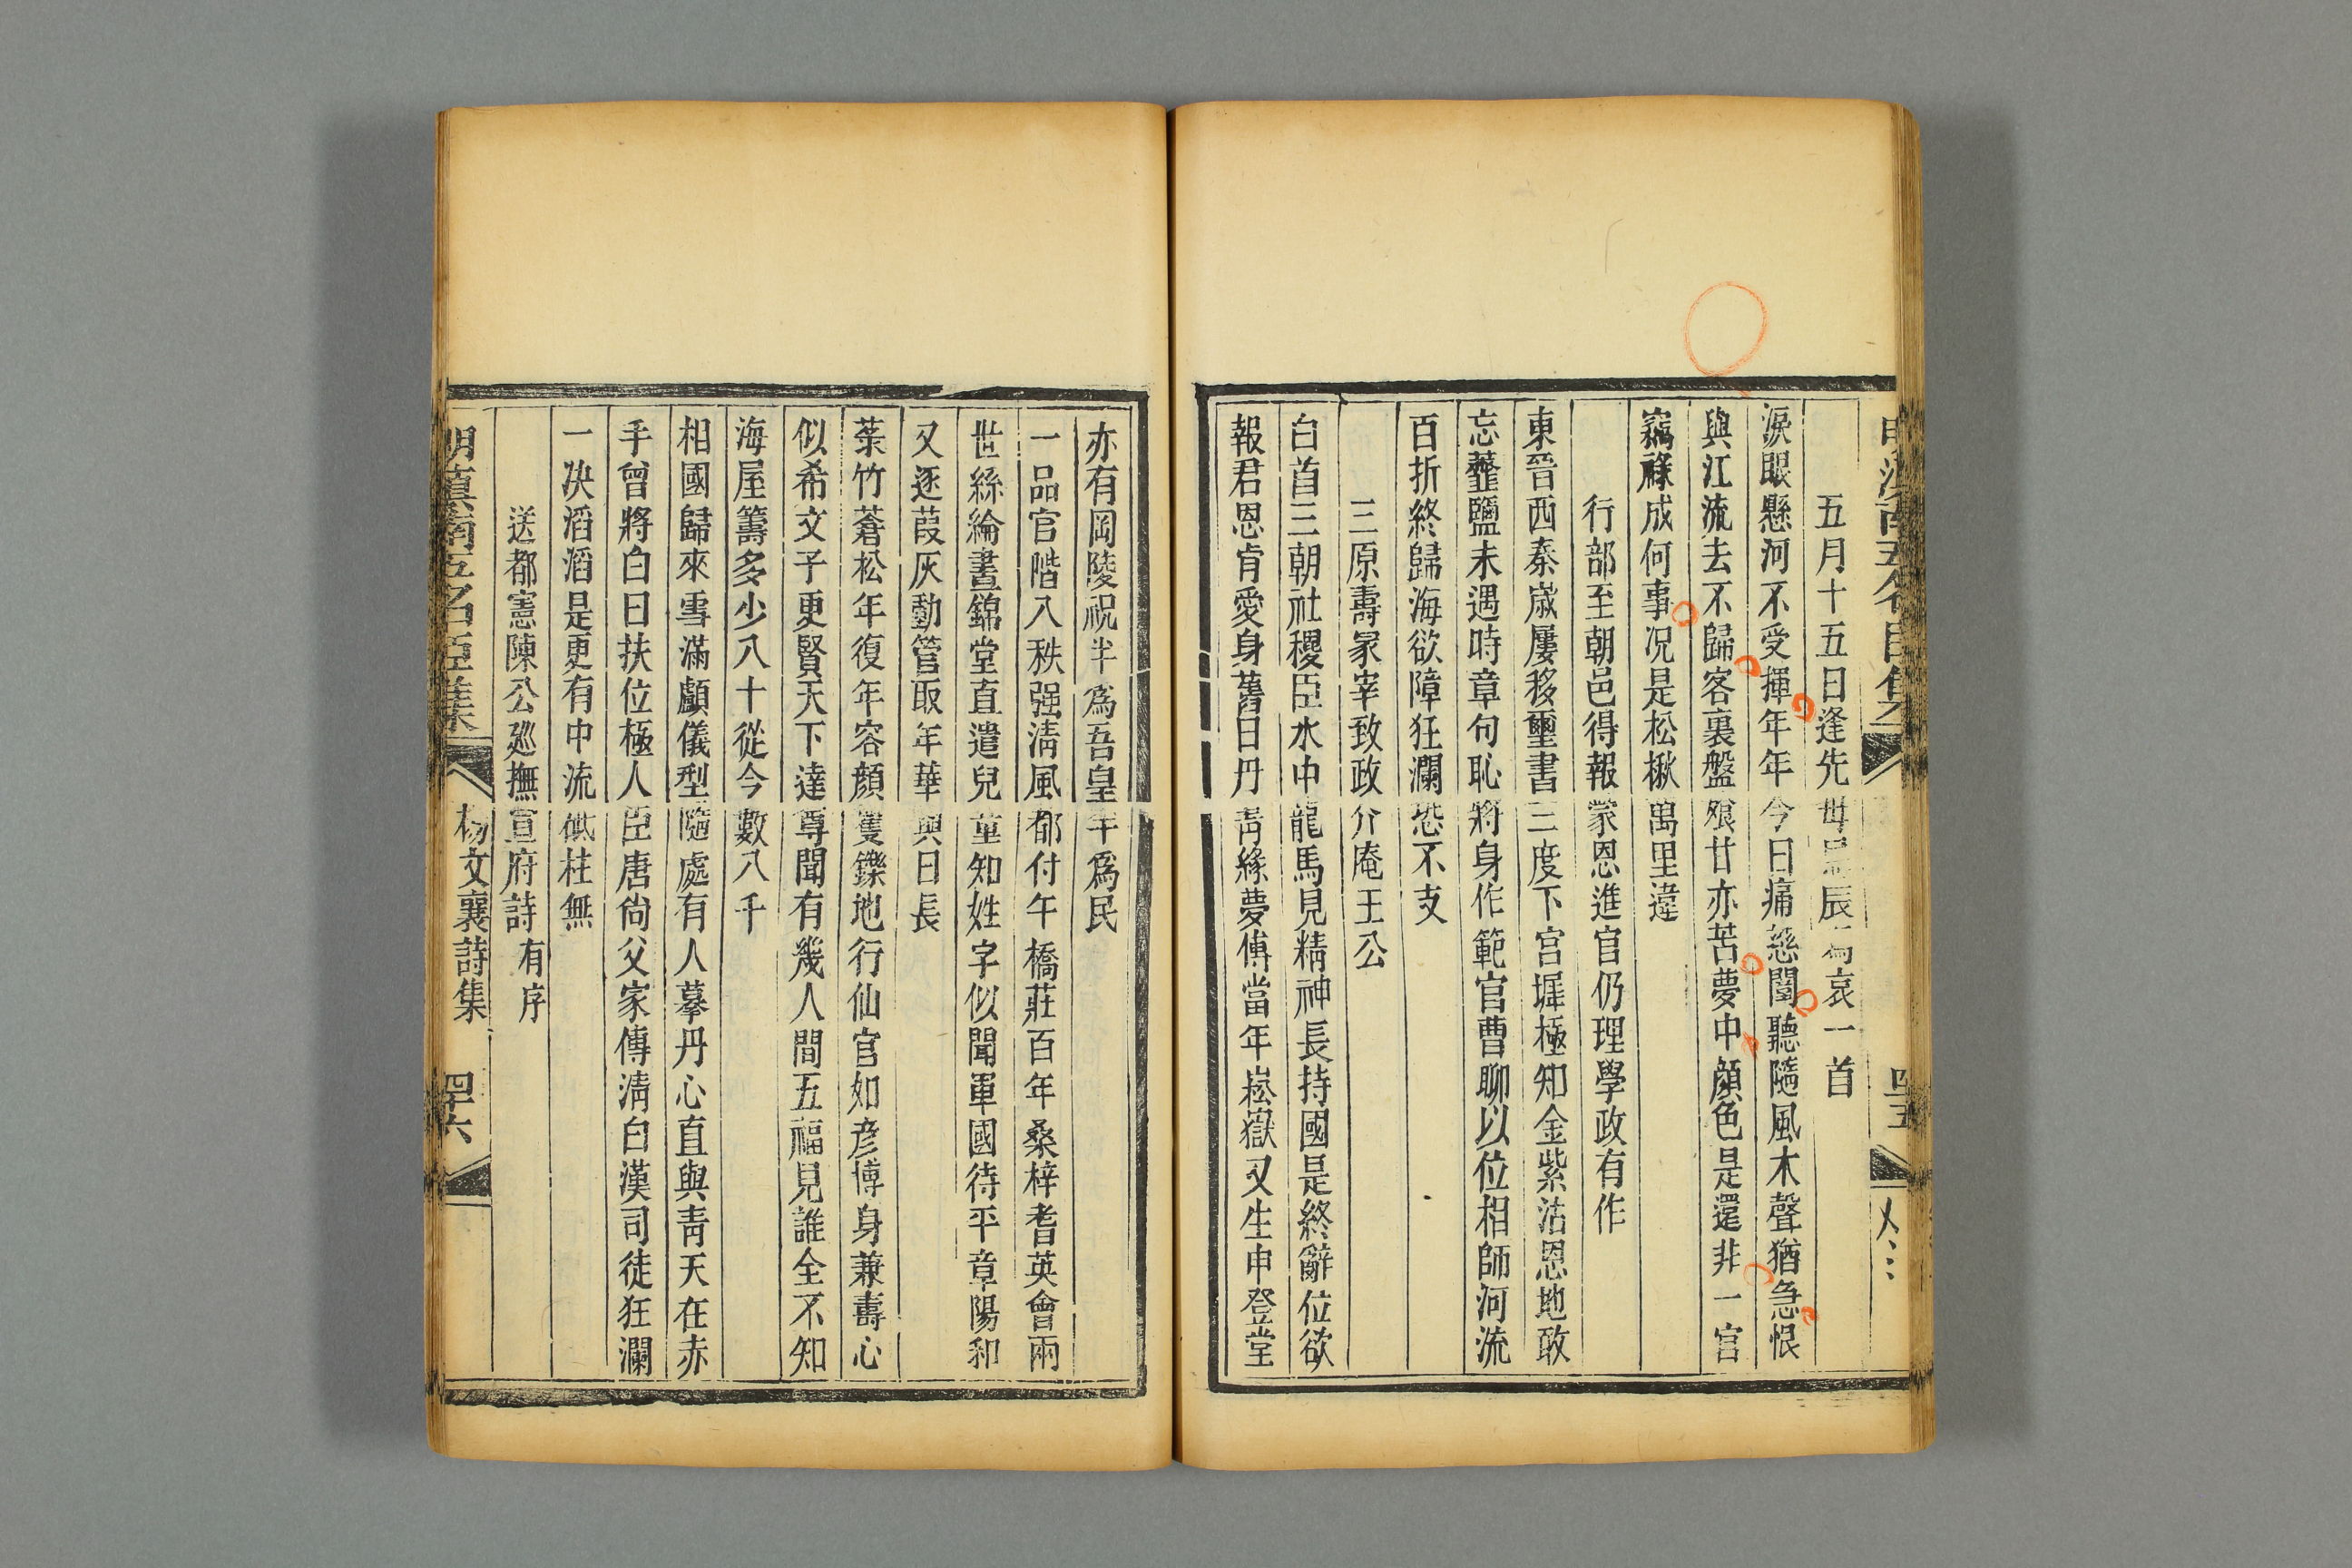 五月十五日逢先母忌辰爲哀一首
淚眼懸河不受揮年年今日痛慈闈聽隨風木聲猶急恨
與江流去不歸客裏盤飱甘亦苦夢中顔色是還非一官
竊祿成何事况是松楸萬里違
行部至朝邑得報蒙恩進官仍理學政有作
東晉西秦嵗屢移璽書三度下宫墀極知金紫沾恩地敢
忘虀鹽未遇時章句恥將身作範官曹聊以位相師河流
百折終歸海欲障狂瀾恐不支
三原壽冢宰致政介庵王公
白首三朝社稷臣水中龍馬見精神長持國是終辭位欲
報君恩肯愛身舊日丹靑緣夢傅當年崧嶽又生申登堂
亦有岡陵祝半爲吾皇半爲民
一品官階八秩强淸風都付午橋莊百年桑梓耆英會兩
世絲綸晝錦堂直遣兒童知姓字似聞軍國待平章陽和
又逐葭灰動管取年華與日長
菉竹蒼松年復年容顔矍鑠地行仙官如彦博身兼壽心
似希文子更賢天下達尊聞有幾人間五福見誰全不知
海屋籌多少八十從今數八千
相國歸來雪滿顱儀型隨處有人摹丹心直與靑天在赤
手曾將白日扶位極人臣唐尙父家傳淸白漢司徒狂瀾
一决滔滔是更有中流砥柱無
送都憲陳公廵撫宣府詩有序
明滇南五名臣集
楊文襄詩集
四十六